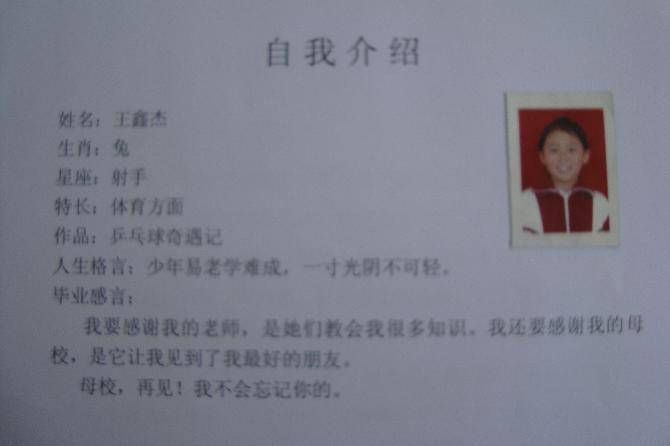 自我介绍
姓名：王鑫杰
生肖：兔
星座：射手
特长：体育方面
作品：乒乓球奇遇记
人生格言：少年易老学难成，一寸光阴不可轻。
毕业感言：
我要感谢我的老师，是她们教会我很多知识。我还要感谢我的母
校，是它让我见到了我最好的朋友。
母校，再见！我不会忘记你的。